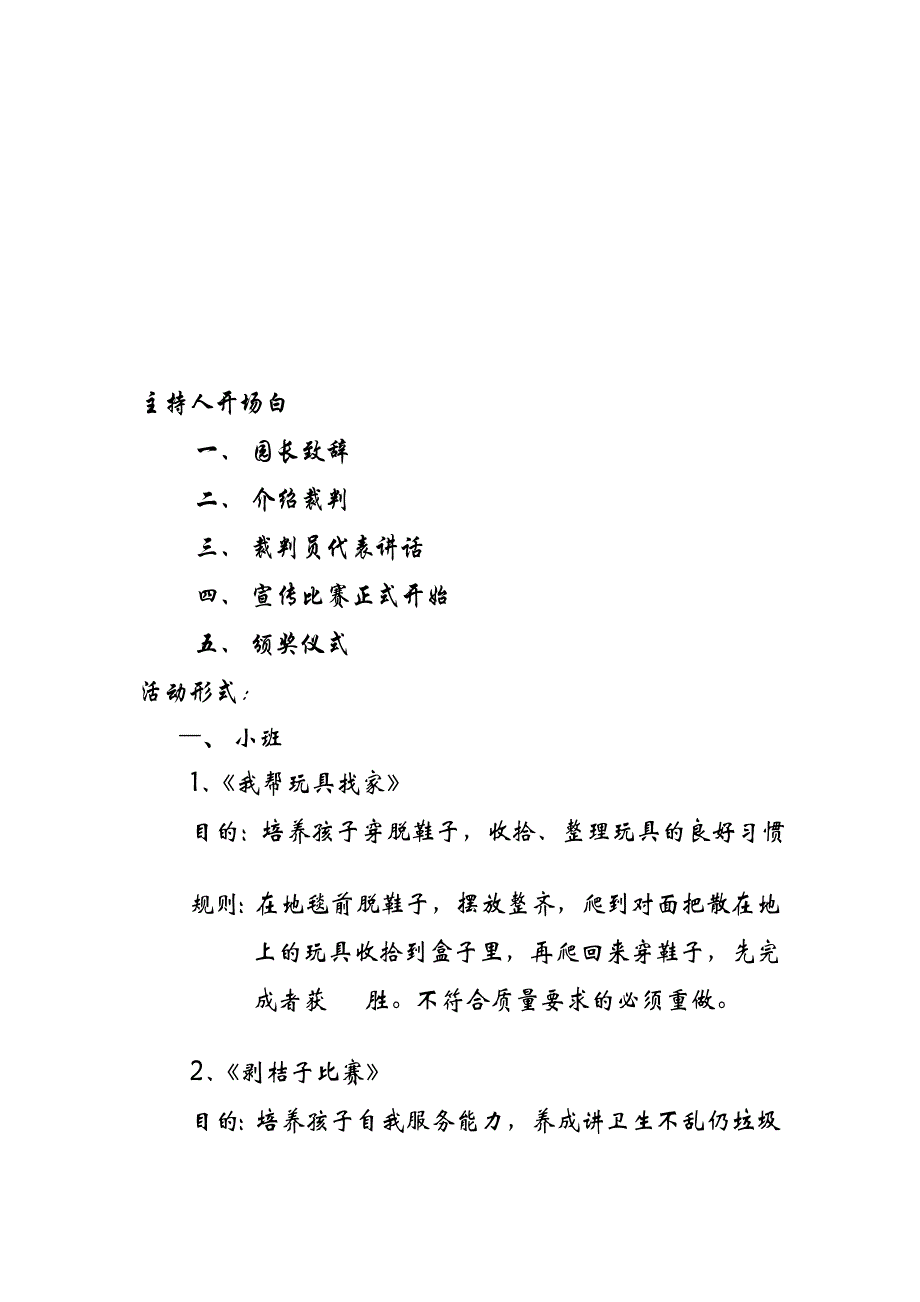 主持人开场白
一、 园长致辞
二、 介绍裁判
三、 裁判员代表讲话
四、 宣传比赛正式开始
五、 颁奖仪式
活动形式：
一、 小班
1、《我帮玩具找家》
目的：培养孩子穿脱鞋子，收拾、整理玩具的良好习惯
规则：在地毯前脱鞋子，摆放整齐，爬到对面把散在地
上的玩具收拾到盒子里，再爬回来穿鞋子，先完
成者获 胜。不符合质量要求的必须重做。
2、《剥桔子比赛》
目的：培养孩子自我服务能力，养成讲卫生不乱仍垃圾